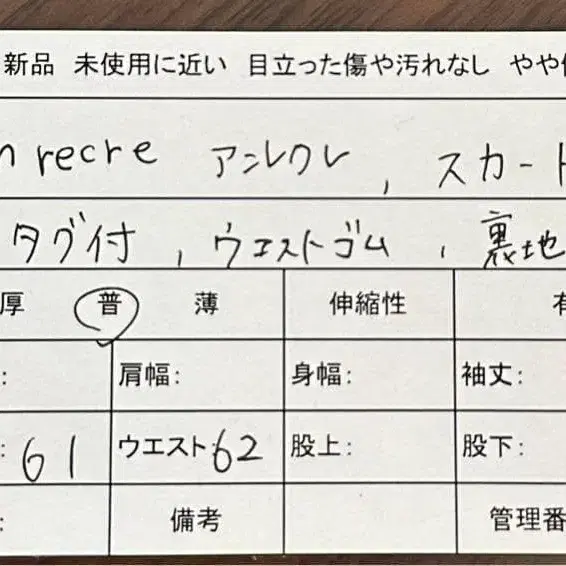 新品 未使用に近い 目立った傷や汚れなし やや
n recre アンレクレ , スカート
タグ付 , ウエストゴム , 裏地
厚 普 薄 伸縮性
: 肩幅: 身幅: 袖丈:
: 61 ウエスト 62 股上: 股下:
: 備考 管理番